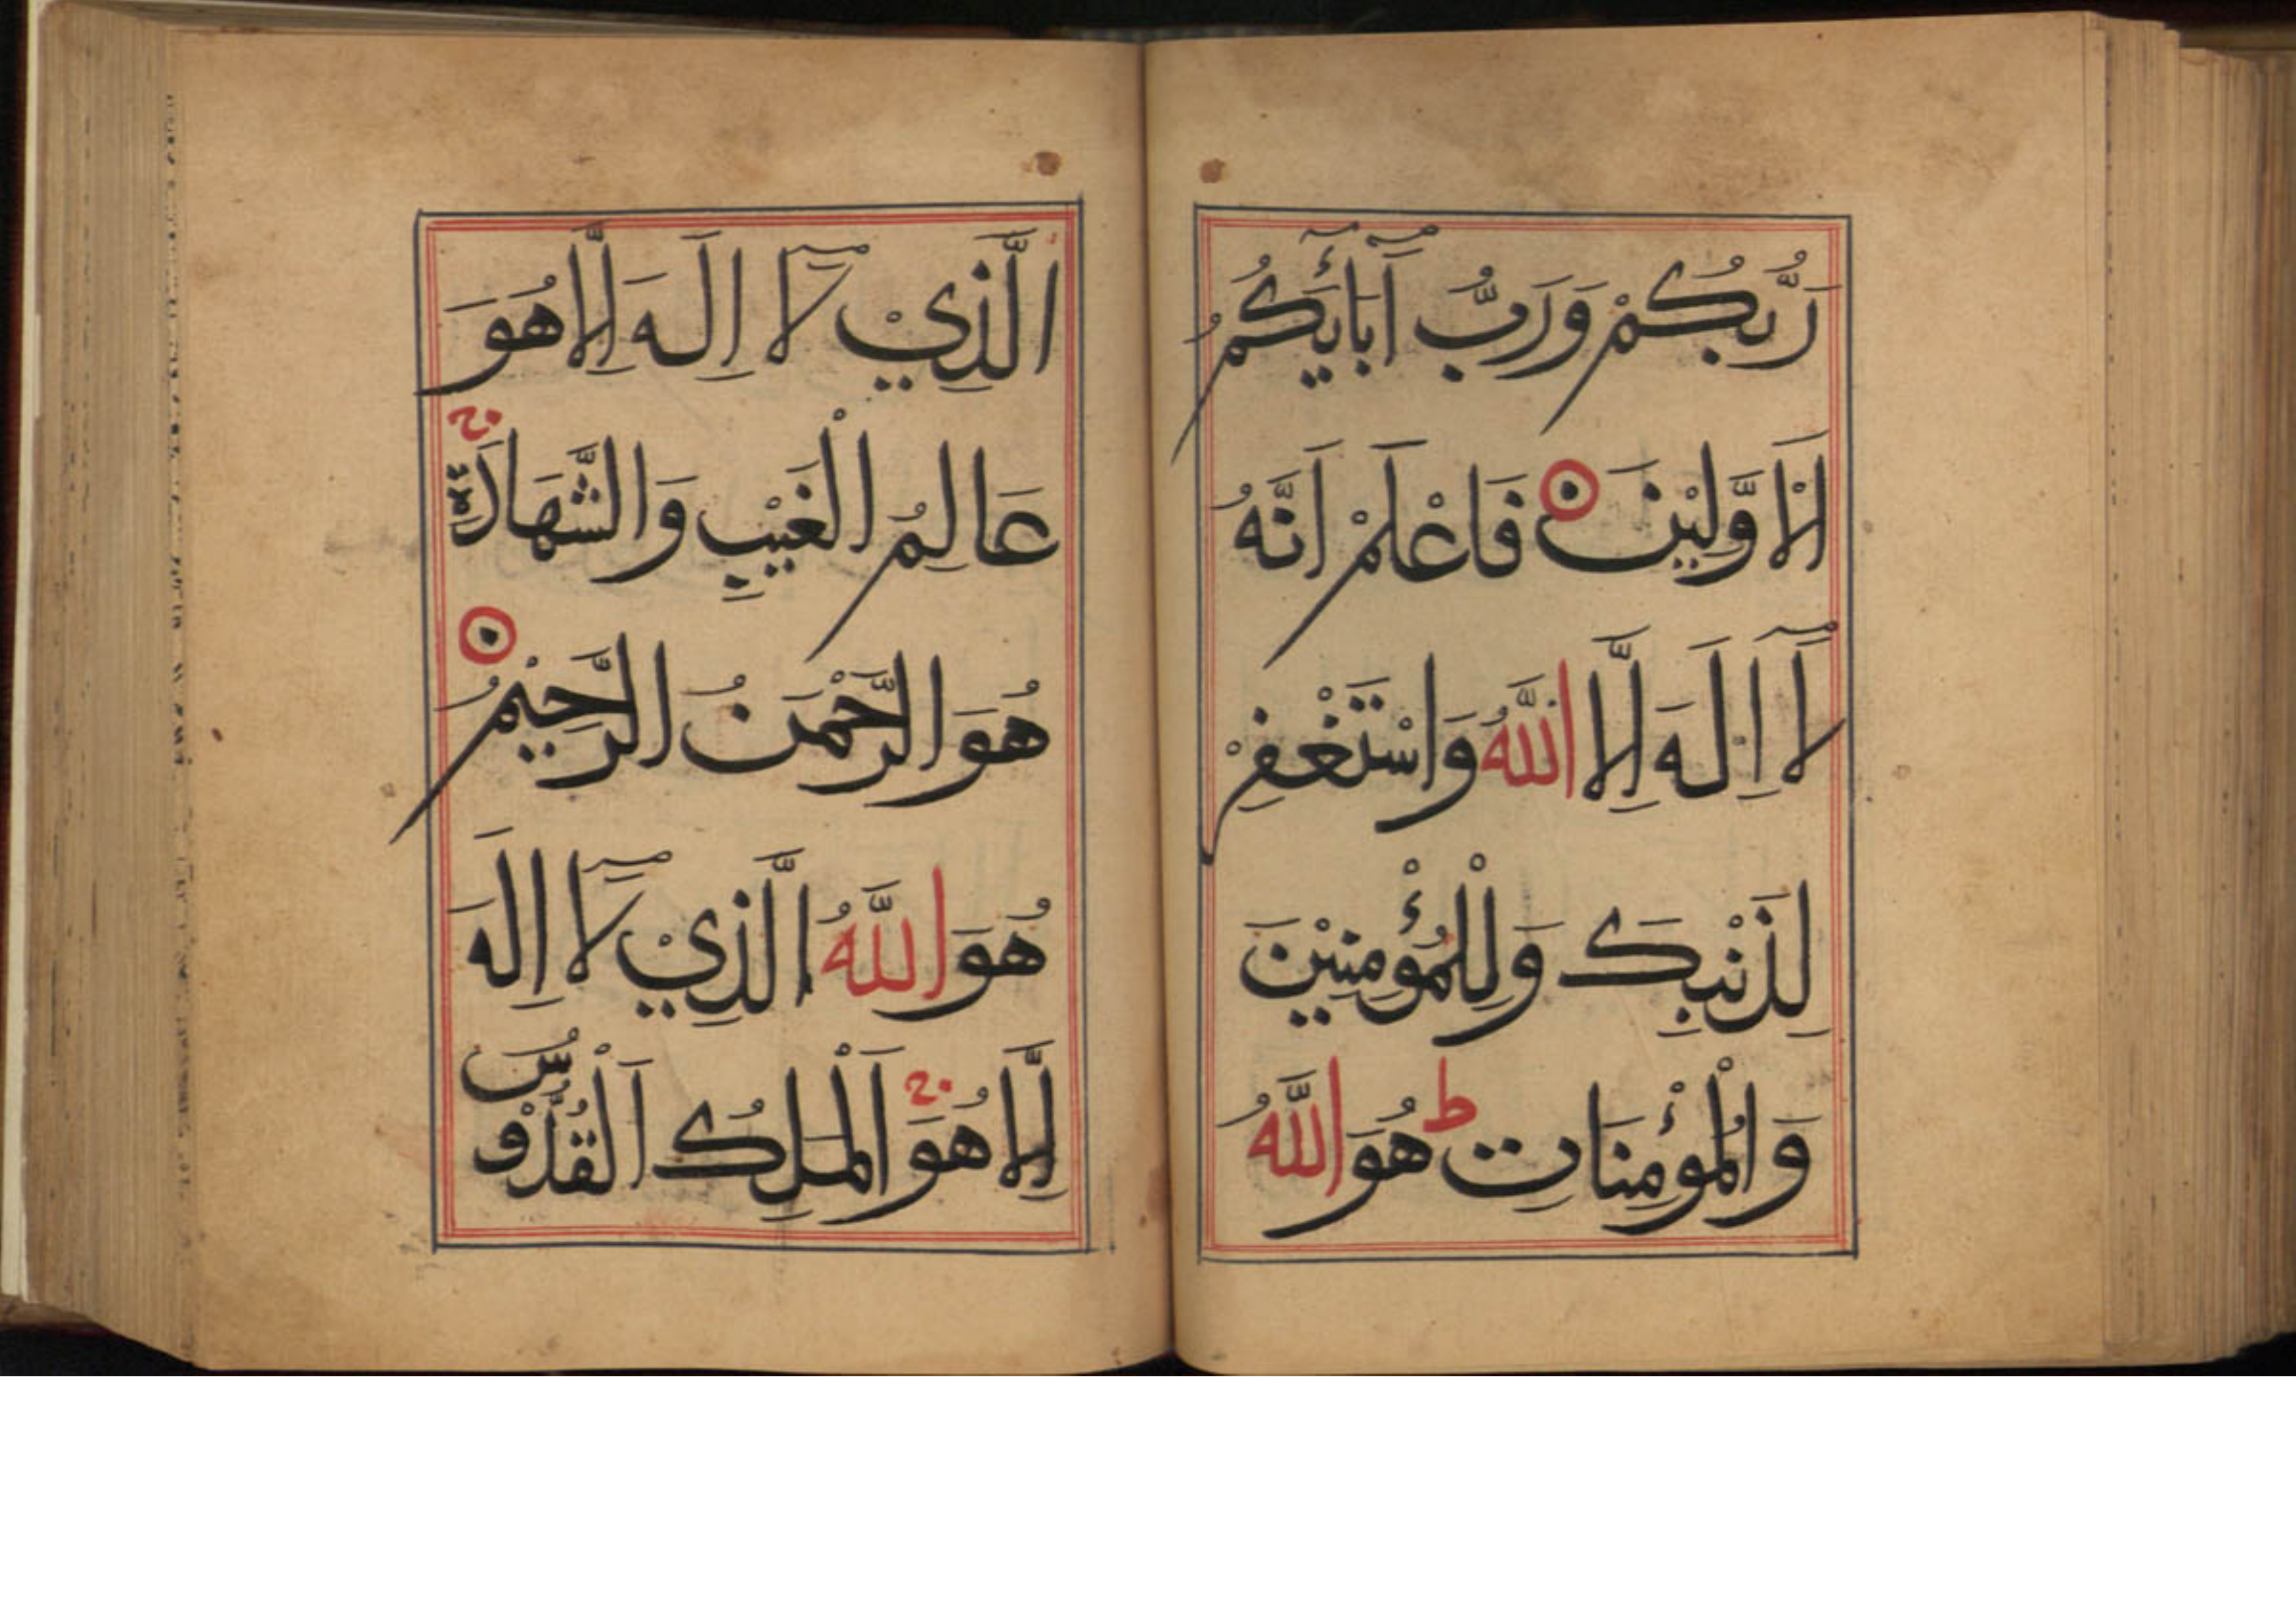 رَبُّكُمْ وَرَبُّ آبَآئِكُمُ
الْاَوَّلِيْنَ فَاعْلَمْ اَنَّهُ
لَآ اِلَهَ اِلَّا اللَّهُ وَاسْتَغْفِرْ
لِذَنْبِكَ وَلِلْمُؤْمِنِيْنَ
وَالْمُؤْمِنَاتِ ط هُوَ اللَّهُ
الَّذِيْ لَآ اِلَهَ اِلَّا هُوَ
عَالِمُ الْغَيْبِ وَالشَّهَادَةِ
هُوَ الرَّحْمَنُ الرَّحِيْمُ
هُوَ اللَّهُ الَّذِيْ لَآ اِلَهَ
اِلَّا هُوَ اَلْمَلِكُ اَلْقُدُّوْسُ